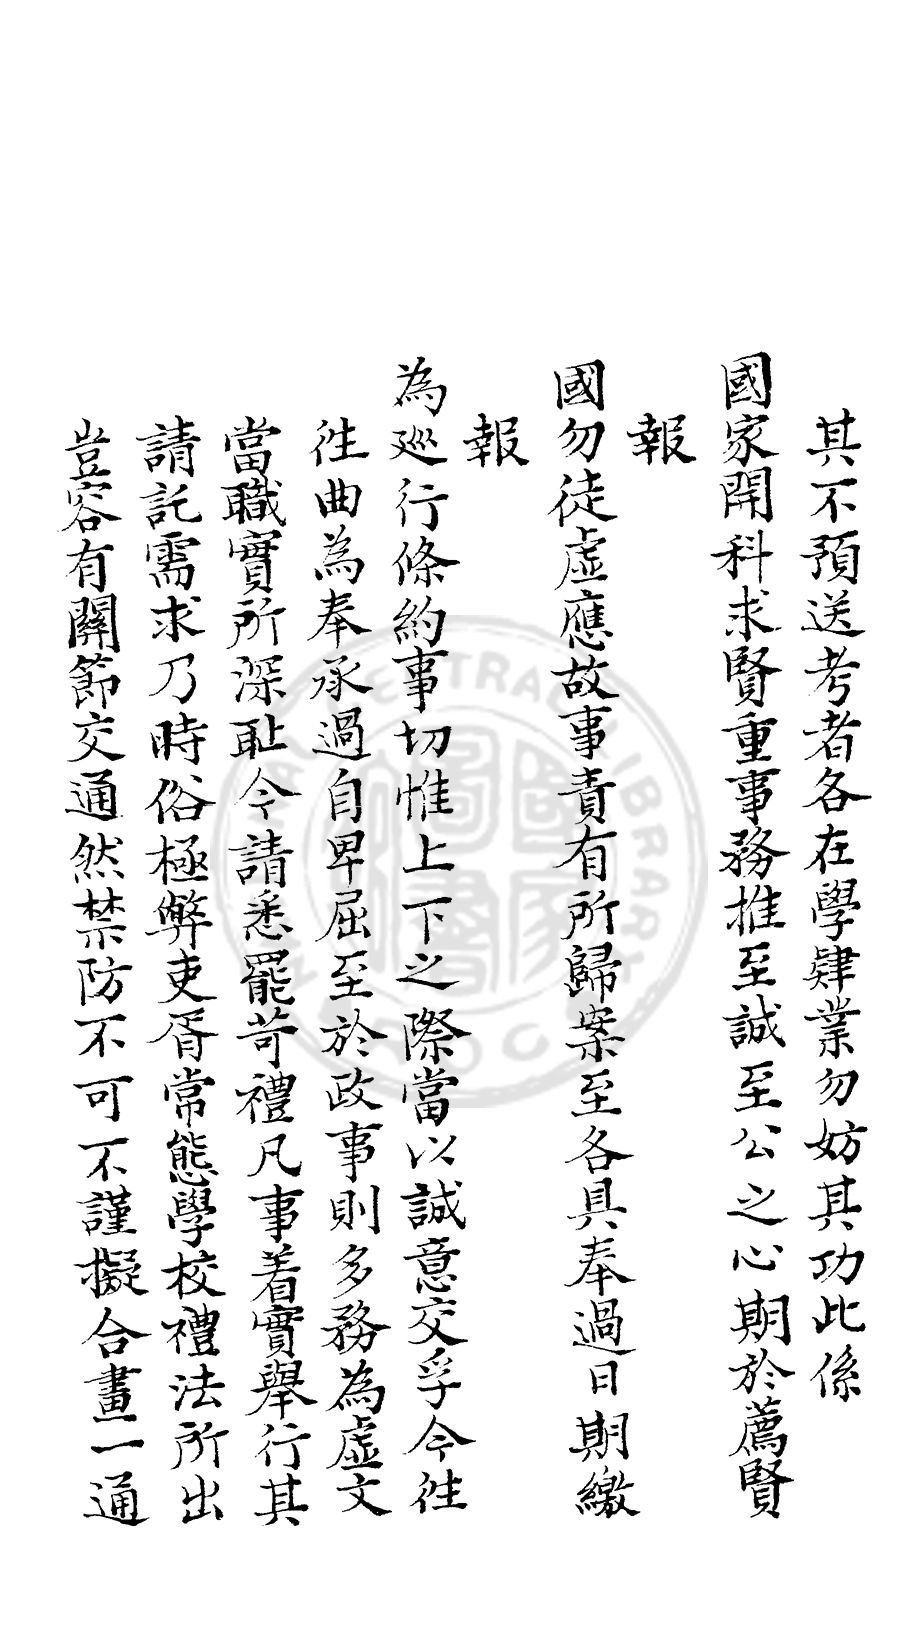 其不預送考者各在學肄業勿妨其功此係
國家開科求賢重事務推至誠至公之心期於薦賢
報
國勿徒虛應故事責有所歸案至各具奉過日期繳
報
為廵行條約事切惟上下之際當以誠意交孚今徃
徃曲為奉承過自卑屈至於政事則多務為虛文
當職實所深耻今請悉罷苛禮凡事着實舉行其
請託需求乃時俗極弊吏胥常態學校禮法所出
豈容有關節交通然禁防不可不謹擬合畫一通